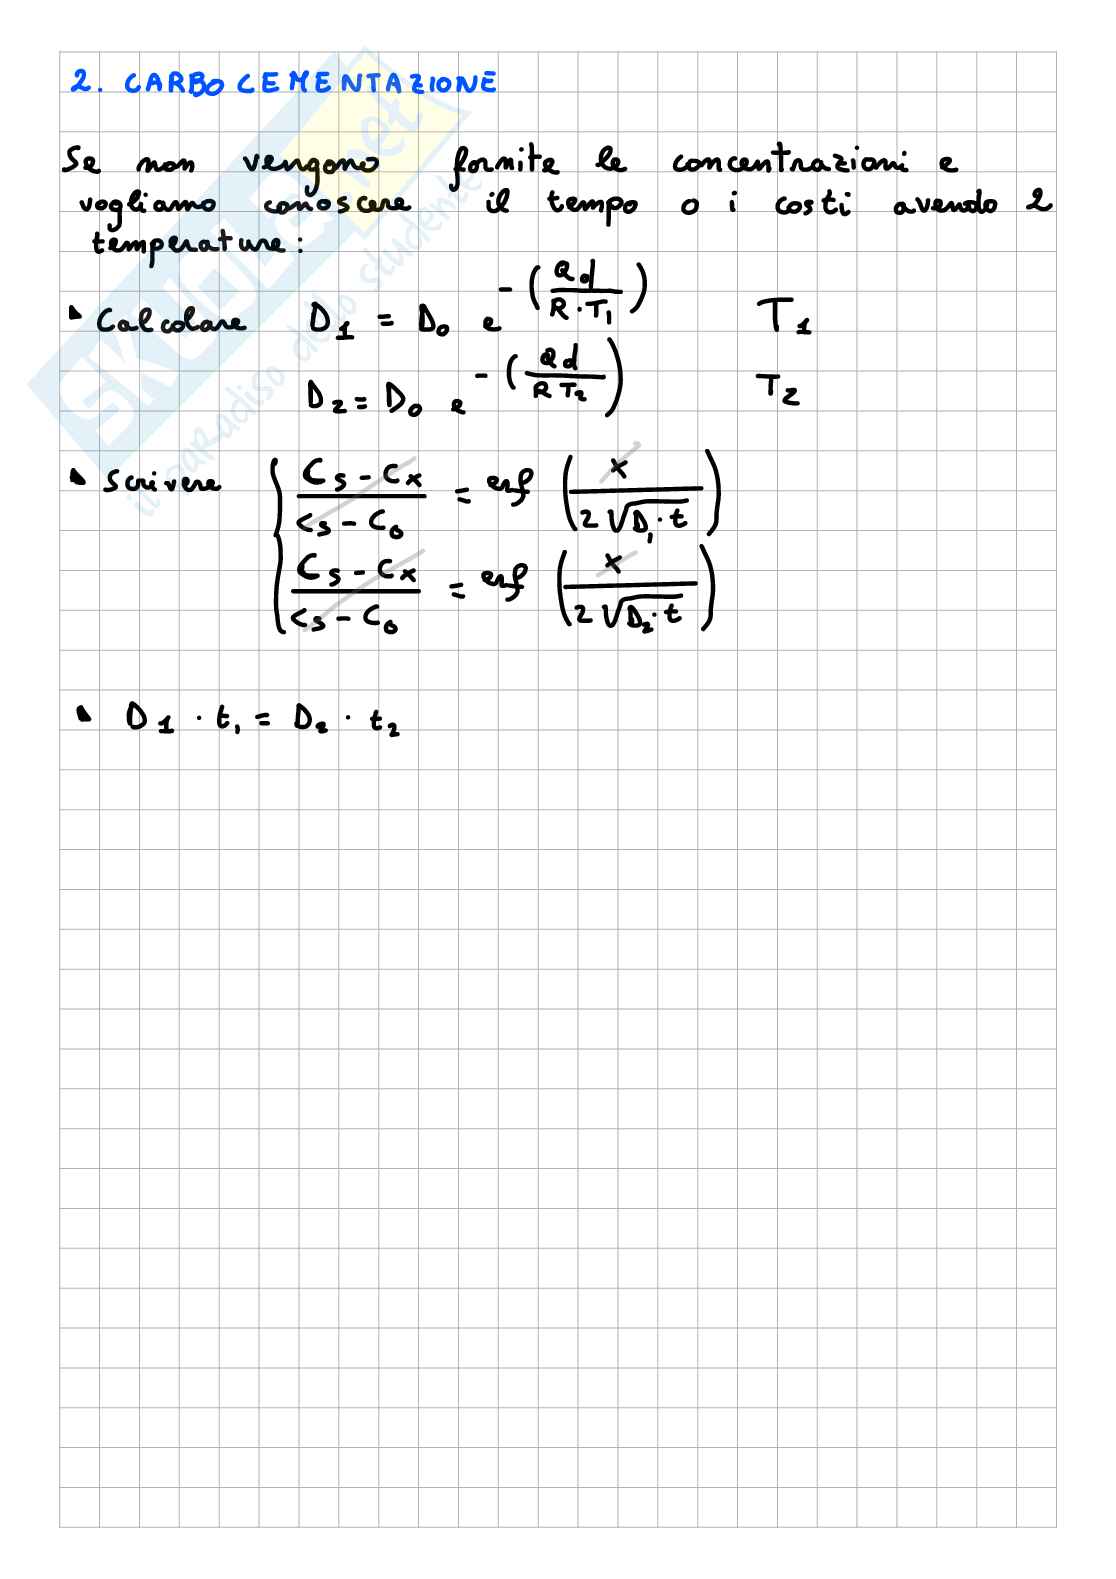 2. CARBOCEMENTAZIONE
Se non vengono fornite le concentrazioni e
vogliamo conoscere il tempo o i costi avendo 2
temperature:
Calcolare D₁ = D₀ e^-(Qd / R·T₁) T₁
D₂ = D₀ e^-(Qd / R T₂) T₂
Scrivere { (Cs - Cx) / (Cs - C₀) = erf (x / 2√D₁·t)
(Cs - Cx) / (Cs - C₀) = erf (x / 2√D₂·t)
D₁ · t₁ = D₂ · t₂
SKUOLA.net
il paradiso dello studente